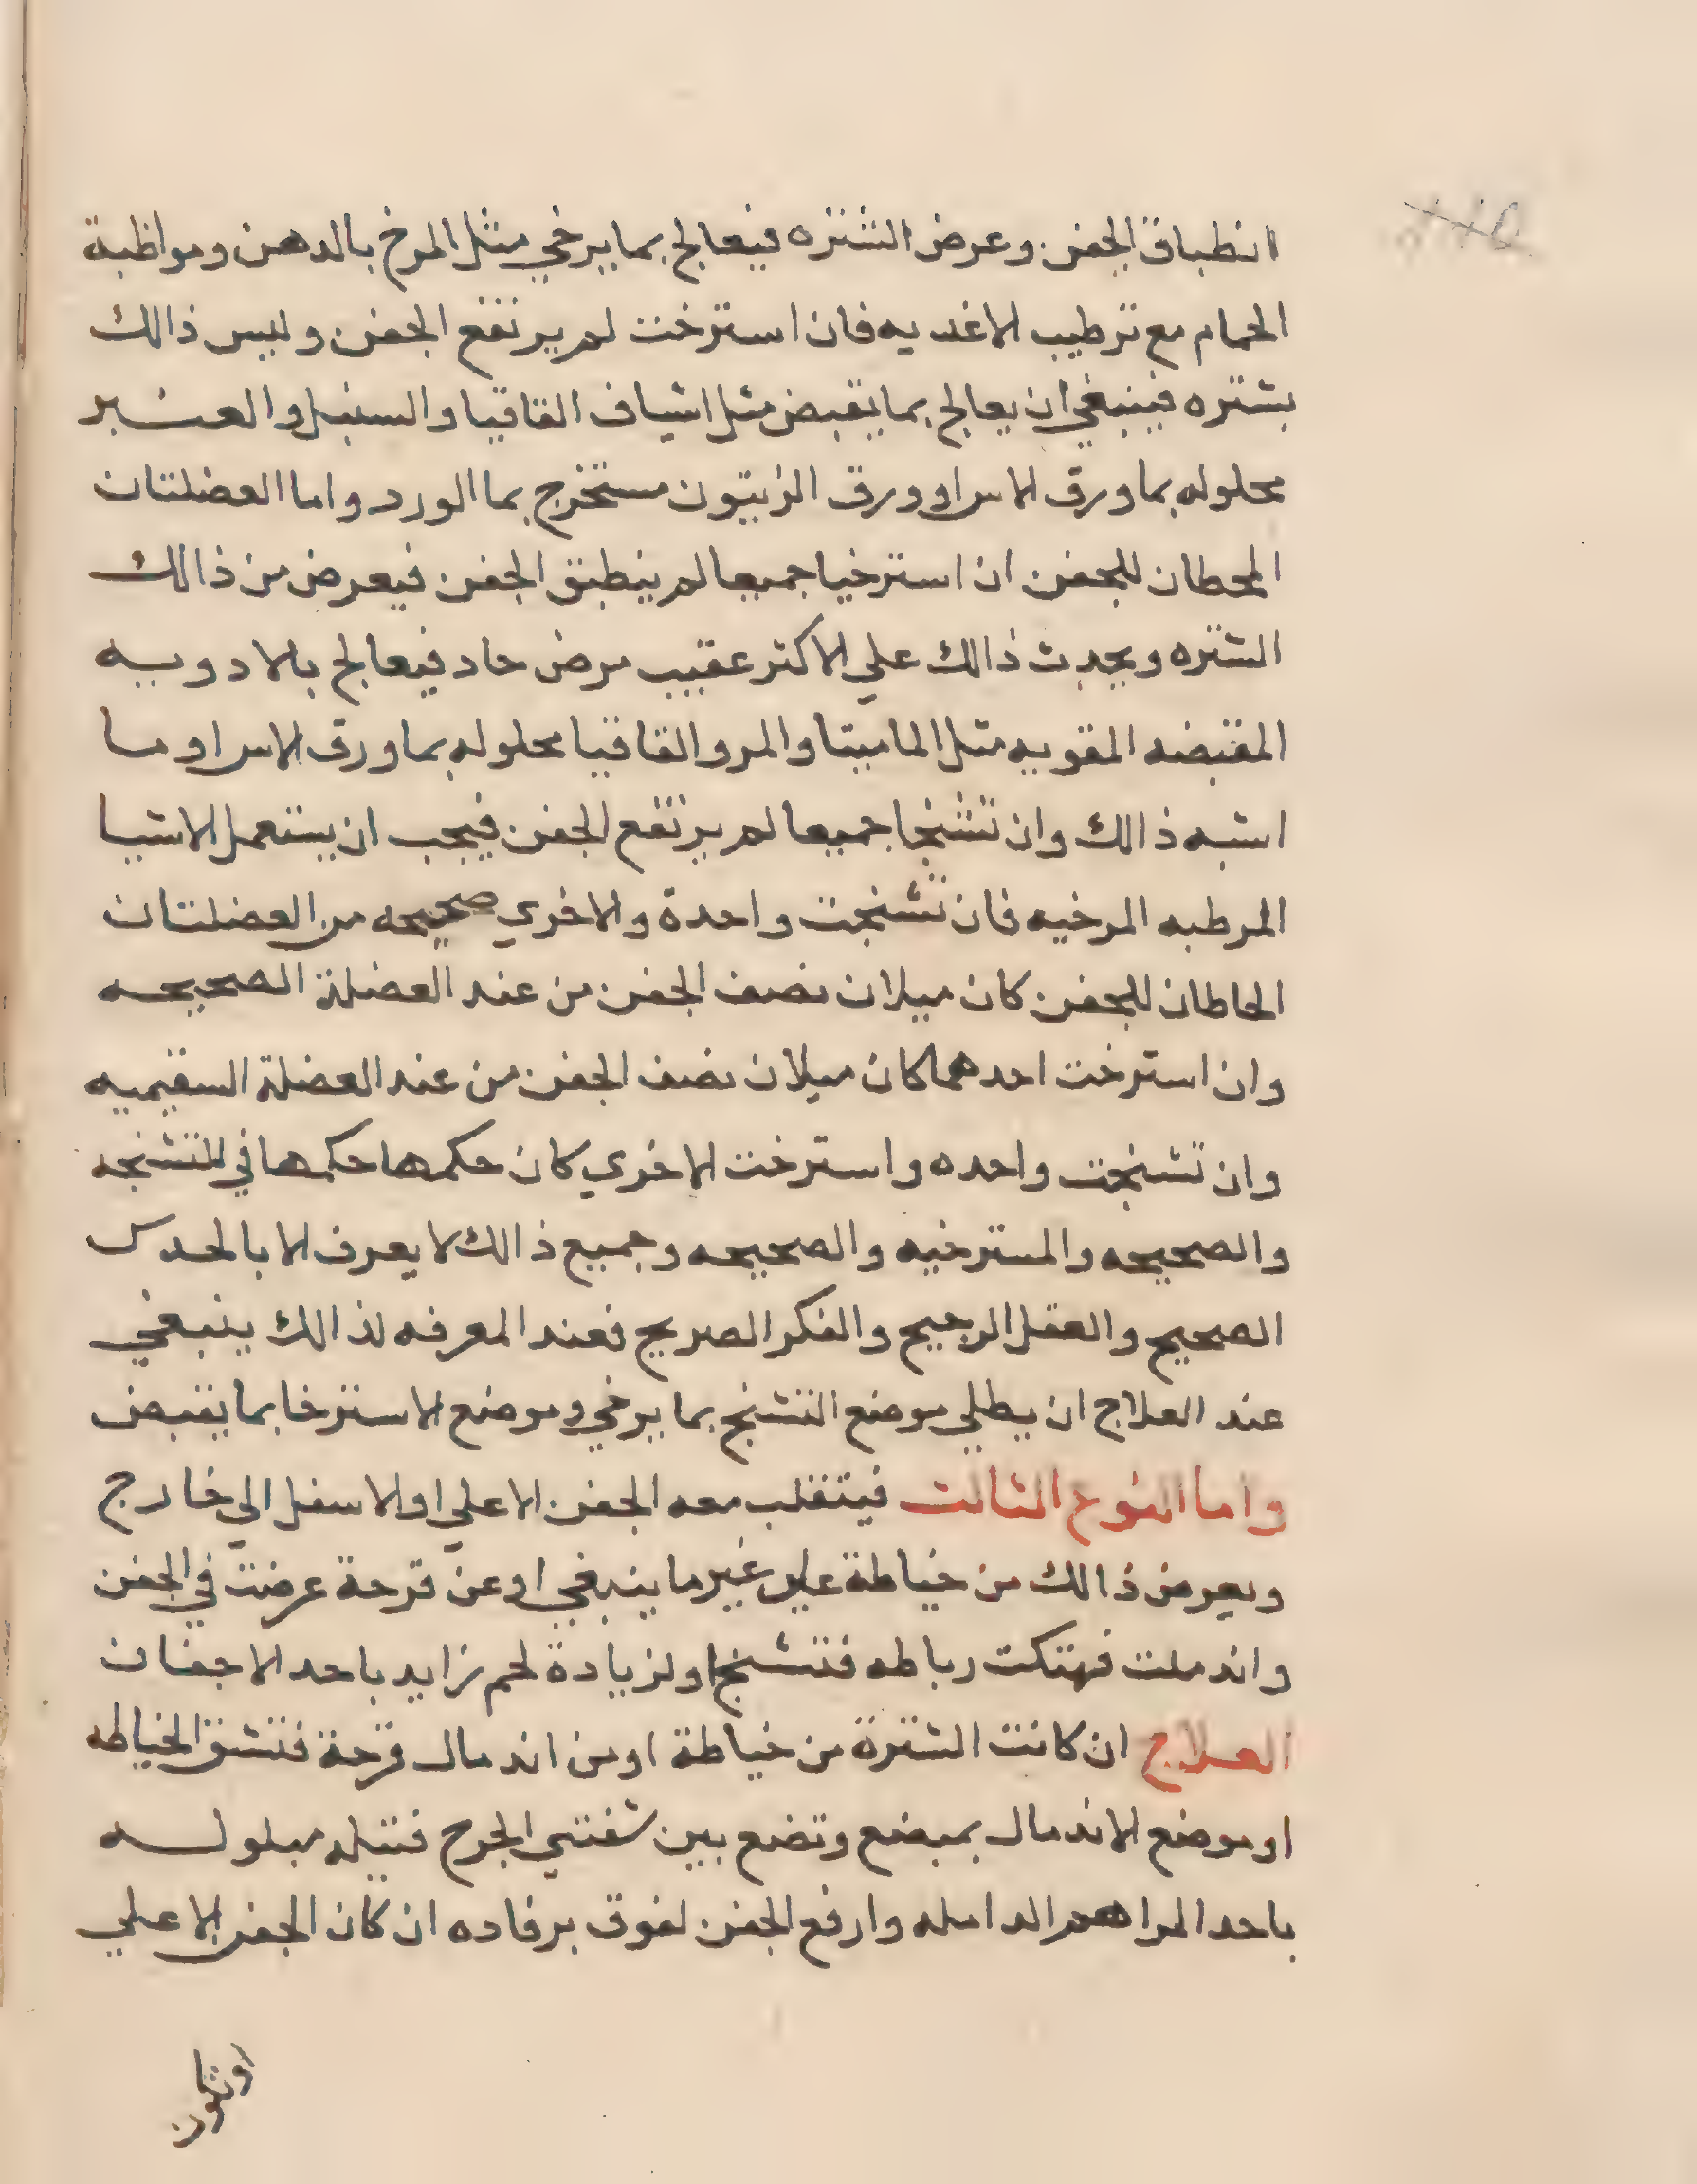 انطباق الجفن وعرض الشتره فيعالج بما يرخي مثل المرخ بالدهن ومواظبة
الحمام مع ترطيب الاغديه فان استرخت لم يرتفع الجفن وليس ذالك
بشتره فينبغي ان يعالج بما يقبض مثل اشياف القاقيا والسنبل والعنبر
محلوله بما ورق الاس او ورق الزيتون مستخرج بما الورد واما العضلتان
المحطان للجفن ان استرخيا جميعا لم ينطبق الجفن فيعرض من ذالك
الشتره ويحدث ذالك علي الاكثر عقيب مرض حاد فيعالج بالادويه
المقبضه المقويه مثل الماميتا والمر والقاقيا محلوله بما ورق الاس او ما
اشبه ذالك وان تشنجا جميعا لم يرتفع الجفن فيجب ان يستعمل الاشيا
المرطبه المرخيه فان تشنجت واحدة والاخري صحيحه من العضلتان
الحاطان للجفن كان ميلان نصف الجفن من عند العضلة الصحيحه
وان استرخت احدهما كان ميلان نصف الجفن من عند العضلة السقيميه
وان تشنجت واحده واسترخت الاخري كان حكمها حكمها في المتشنجه
والصحيحه والمسترخيه والصحيحه وجميع ذالك لا يعرف الا بالحدس
الصحيح والعقل الرجيح والفكر الصريح فعند المعرفه لذالك ينبغي
عند العلاج ان يطلي موضع التشنج بما يرخي وموضع الاسترخا بما يقبض
واما النوع الثالث فيتقلب معه الجفن الاعلي او الاسفل الي خارج
ويعرض ذالك من خياطة علي غير ما ينبغي او عن قرحة عرضت في الجفن
واندملت فهتكت رباطه فتشنج او لزيادة لحم زايد باحد الاجفان
العلاج ان كانت الشترة من خياطة او من اندمال قرحة فتشق الخياطه
او موضع الاندمال بمبضع وتضع بين شفتي الجرح فتيله مبلوله
باحد المراهم الدامله وارفع الجفن لفوق برفاده ان كان الجفن الاعلي